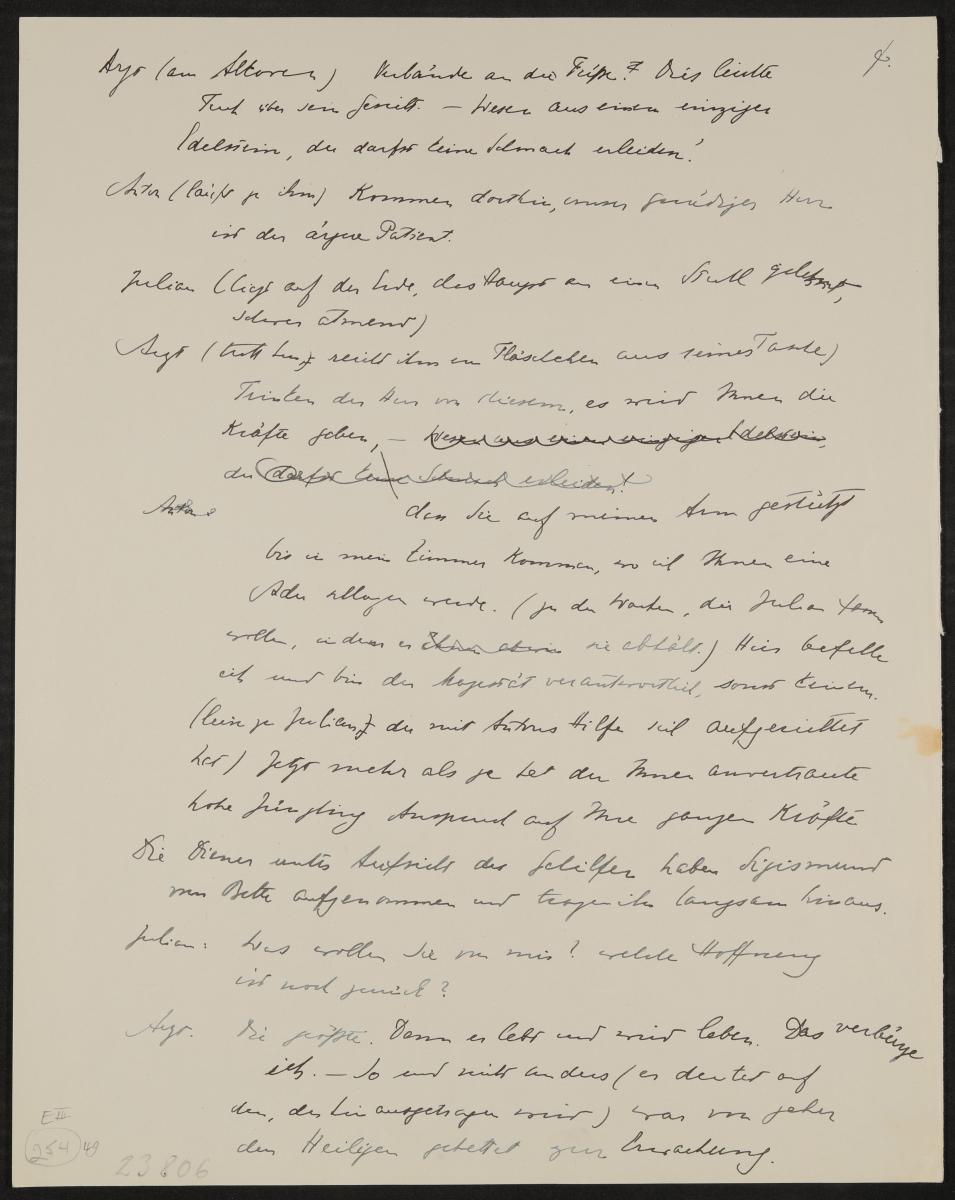 Arzt (am Alkoven) Verbände an die Füße? Dies leichte
Tuch über sein Gesicht. – Wesen aus einem einzigen
Edelstein, du darfst keine Schmach erleiden!
Anton (läuft zu ihm) Kommen dorthin, unser gnädiger Herr
ist der ärgere Patient.
Julian (liegt auf der Erde, das Haupt an einen Stuhl gelehnt,
schwer atmend)
Arzt (tritt hin, reicht ihm ein Fläschchen aus seiner Tasche)
Trinken der Herr von diesem, es wird Ihnen die
Kräfte geben, – Wesen aus einem einzigen Edelstein,
du darfst keine Schmach erleiden!
Anton
dass Sie auf meinen Arm gestützt
bis in mein Zimmer kommen, wo ich Ihnen eine
Ader schlagen werde. (zu den Wachen, die Julian
wollen, indem er sie abhält.) Hier befehle
ich und bin der Majestät verantwortlich, sonst keinem.
(leise zu Julian, der mit Antons Hilfe sich aufgerichtet
hat) Jetzt mehr als je hat der Ihnen anvertraute
hohe Jüngling Anspruch auf Ihre ganzen Kräfte
Die Diener unter Aufsicht des Gehilfen haben Sigismund
vom Bette aufgenommen und tragen ihn langsam hinaus.
Julian: Was wollen Sie von mir? welche Hoffnung
ist noch zurück?
Arzt. Die größte. Denn er lebt und wird leben. Das verbürge
ich. – So und nicht anders (er deutet auf
den, der hinausgetragen wird) war von jeher
den Heiligen gebettet zur Erwachung.
E III
254
49
23806